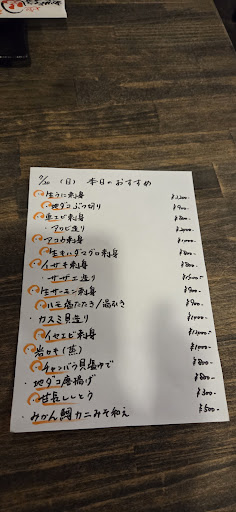 7/20 (日) 本日のおすすめ
生うに刺身 ¥1,200-
地ダコぶつ切り ¥900-
車エビ刺身 ¥800-
・アワビ造り
アコウ刺身 ¥1,000-
生本まぐろ刺身 ¥800-
イサキ刺身 ¥800-
・サザエ造り
生サーモン刺身 ¥900-
ハモ塩たたき/湯引き ¥900-
・カスミ貝造り
イセエビ刺身
岩ガキ(蒸) ¥1,000-
チャンバラ貝塩ゆで ¥800-
・地ダコ唐揚げ ¥800-
・甘長ししとう ¥300-
・みかん鯛カニみそ和え ¥500-